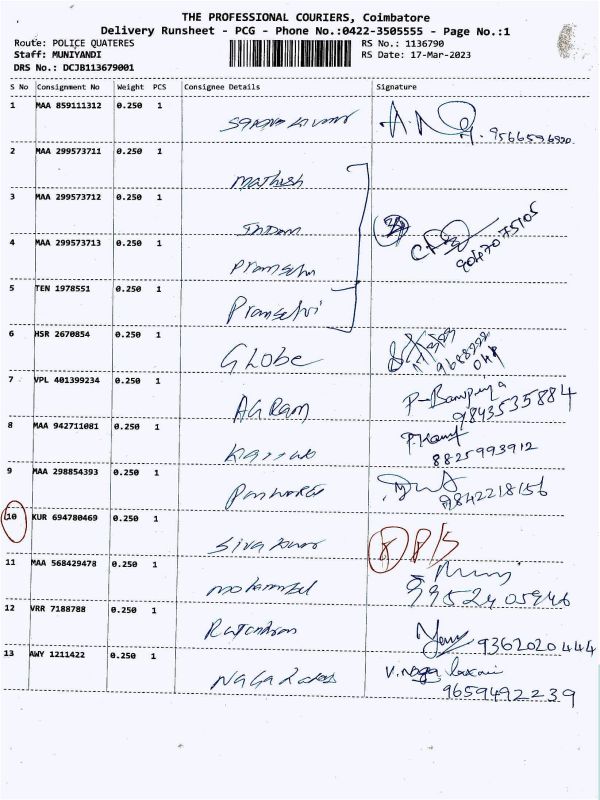 THE PROFESSIONAL COURIERS, Coimbatore
Delivery Runsheet - PCG - Phone No.:0422-3505555 - Page No.:1
Route: POLICE QUATERES RS No.: 1136790
Staff: MUNIYANDI RS Date: 17-Mar-2023
DRS No.: DCJB113679001
S No Consignment No Weight PCS Consignee Details Signature
1 MAA 859111312 0.250 1
2 MAA 299573711 0.250 1 Mathish
3 MAA 299573712 0.250 1
4 MAA 299573713 0.250 1
5 TEN 1978551 0.250 1
6 HSR 2670854 0.250 1 GLOBE
7 VPL 401399234 0.250 1 AGRAM 9843535884
8 MAA 942711081 0.250 1 8825993912
9 MAA 298854393 0.250 1 9842218156
10 KUR 694780469 0.250 1 Siva
11 MAA 568429478 0.250 1 9952405946
12 VRR 7188788 0.250 1 Rajendran 9362020444
13 AWY 1211422 0.250 1 NAGA V. Naga 9659492239